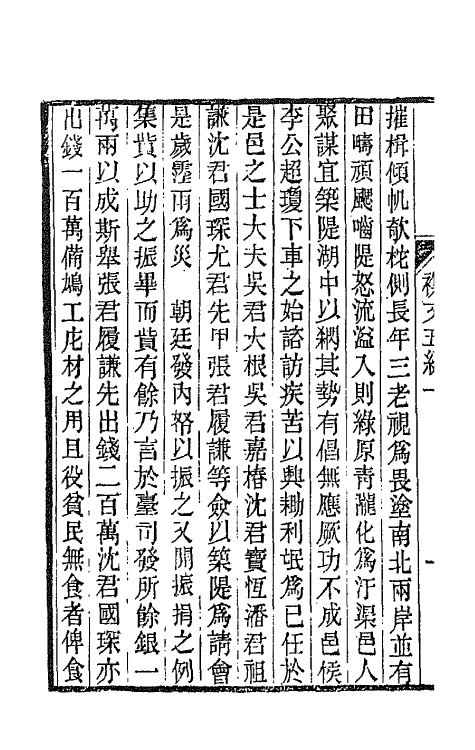 摧楫傾帆欹柁側長年三老視爲畏塗南北兩岸並有
田疇頑颷嚙隄怒流溢入則綠原青隴化爲汙渠邑人
聚謀宜築隄湖中以綱其勢有倡無應厥功不成邑侯
李公超瓊下車之始諮訪疾苦以興耡利氓爲己任於
是邑之士大夫吳君大根吳君嘉椿沈君寶恆潘君祖
謙沈君國琛尤君先甲張君履謙等僉以築隄爲請會
是歲霪雨爲災　朝廷發內帑以振之又開振捐之例
集貲以助之振畢而貲有餘乃言於臺司發所餘銀一
萬兩以成斯舉張君履謙先出錢二百萬沈君國琛亦
出錢一百萬備鳩工庀材之用且役貧民無食者俾食
文五編一
一